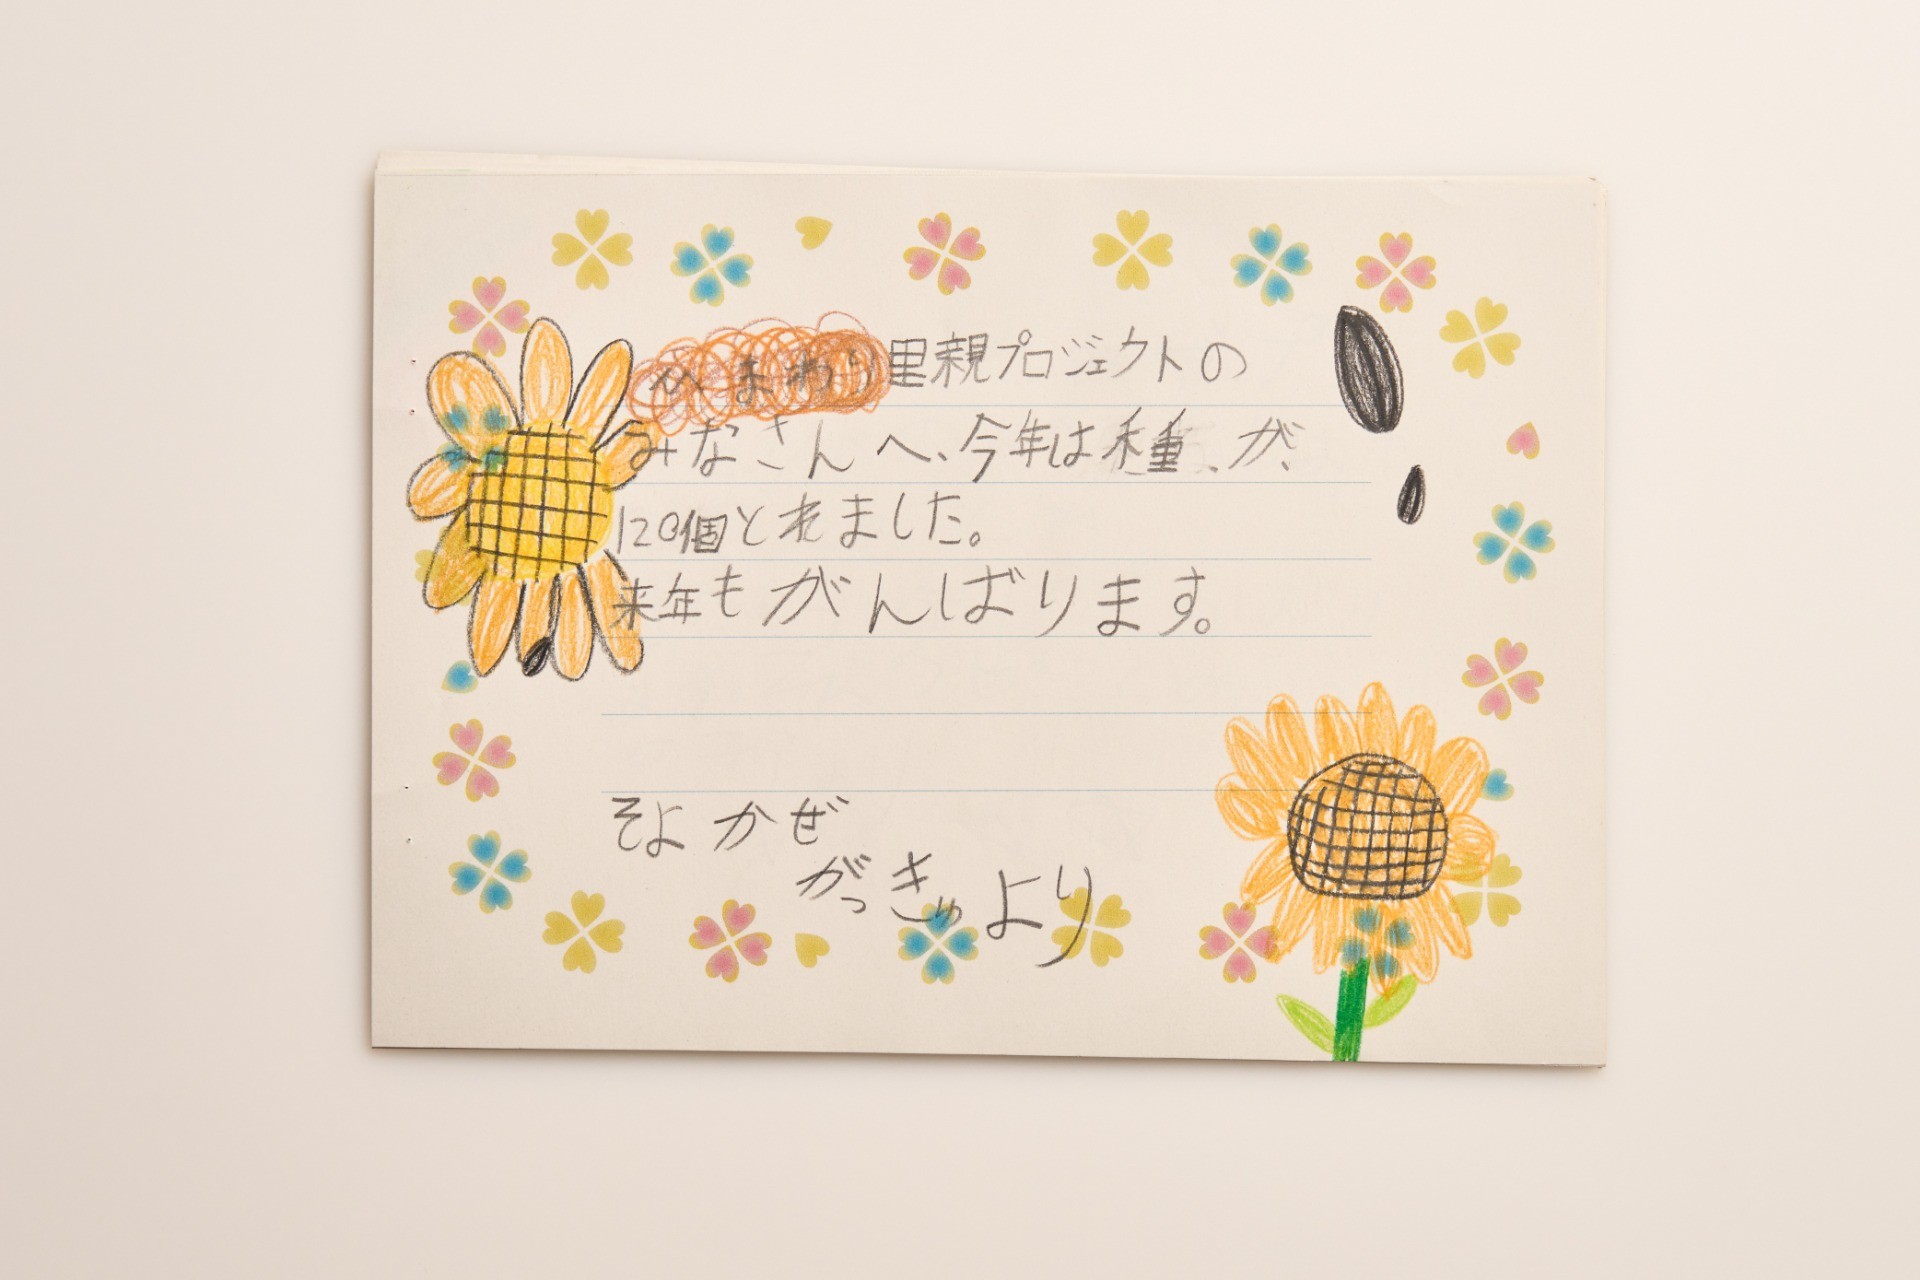 ひまわり里親プロジェクトの
みなさんへ、今年は種が、
120個とれました。
来年もがんばります。
そよかぜ
がっきゅより